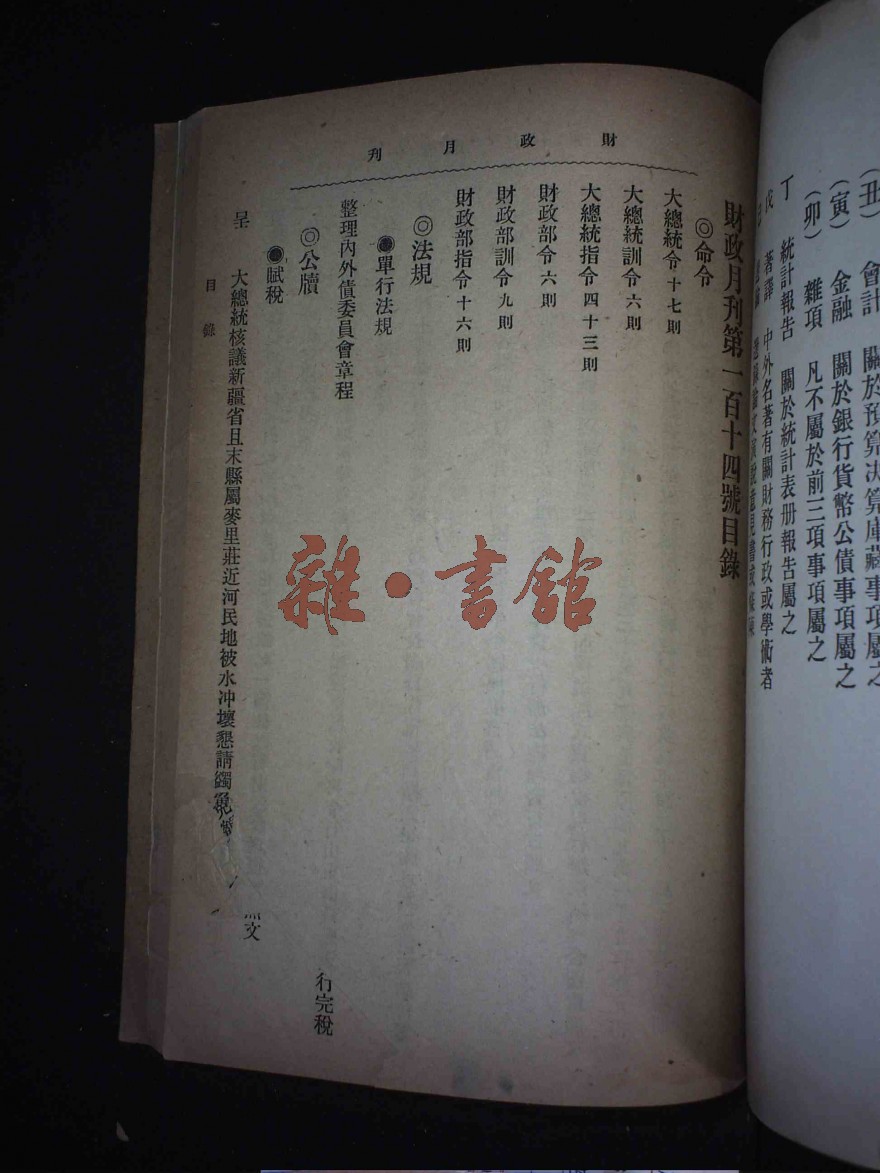 (丑) 會計 關於預算決算庫藏事項屬之
(寅) 金融 關於銀行貨幣公債事項屬之
(卯) 雜項 凡不屬於前三項事項屬之
丁 統計報告 關於統計表册報告屬之
戊 著譯 中外名著有關財務行政或學術者
財政月刊
財政月刊第一百十四號目錄
◎命令
大總統令十七則
大總統訓令六則
大總統指令四十三則
財政部令六則
財政部訓令九則
財政部指令十六則
◎法規
●單行法規
整理內外債委員會章程
◎公牘
●賦稅
呈 大總統核議新疆省且末縣屬麥里莊近河民地被水冲壞懇請蠲免
文
行完稅
目錄
雜·書館